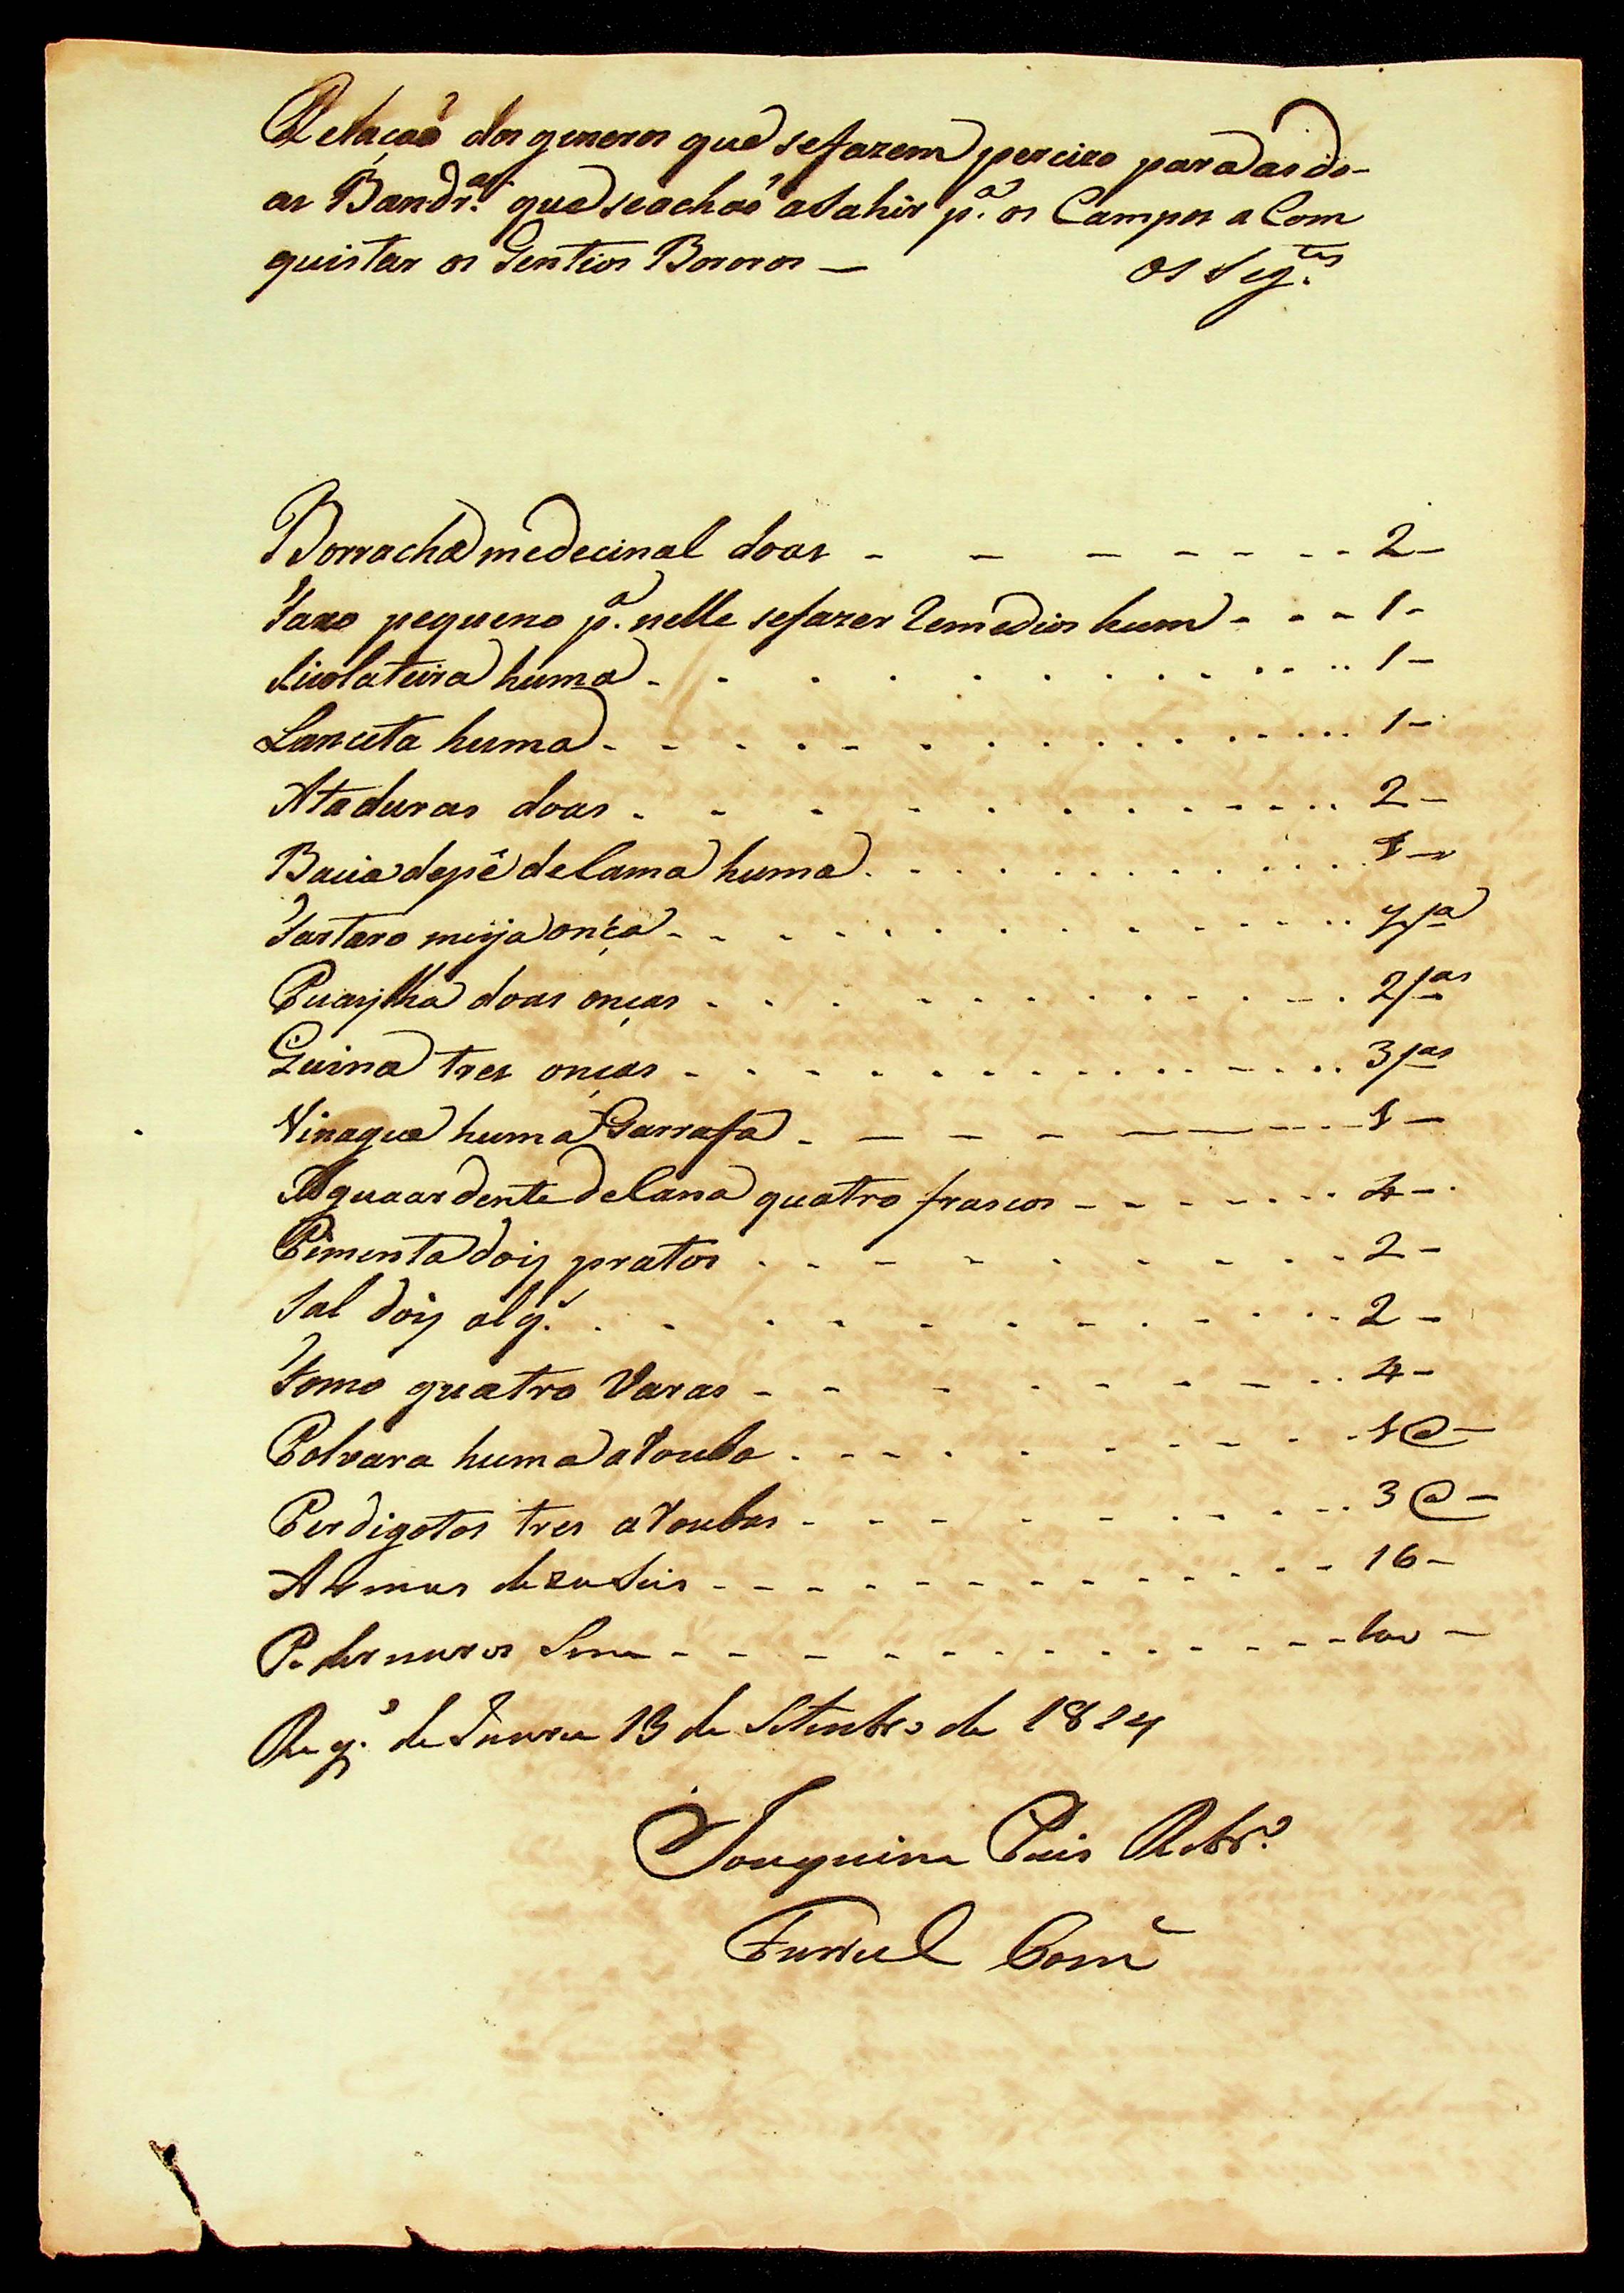 Relação dos generos que sefazem percizo para as do-
as Bandr.as que seachão a Sahir p.a os Campos a Com
quistar os Gentios Bororos — os Seg.tes
Borracha medecinal doas - - - - - - - 2-
Taxo pequeno p.a nelle sefazer Remedios hum - - - 1-
Sicolateira huma - . . . . . . . . 1-
Lanceta huma - - - . . . . . . . 1-
Ataduras doas . - - - - . . . . 2-
Bacia depé de Cama huma . . . . . . . 1-
Tartaro meya onça - - - . . . . . .
Puaylha doas onças . . . - - - - . 2
Quina tres onças - - - - - - . . . 3
Vinagre huma Garrafa - — - - — 1-
Aguaardente de Cana quatro frascos - - - - - 4-
Pimenta doiz pratos . . - - - - - 2-
Sal doiz alq.s . . - - - - - 2-
Fomo quatro Varas - - - - - - - 4-
Polvara huma aRouba . - - - - - - 1@-
Perdigotos tres aRoubas - - - - - - 3@-
Armas dezaSeis - - - - - - - - 16-
Pederneiros Sem - - - - - - - - 100-
Reg.o de 13 de Setenbro de 1824
Joaquim Pais Ribr.o
Furriel Com.e